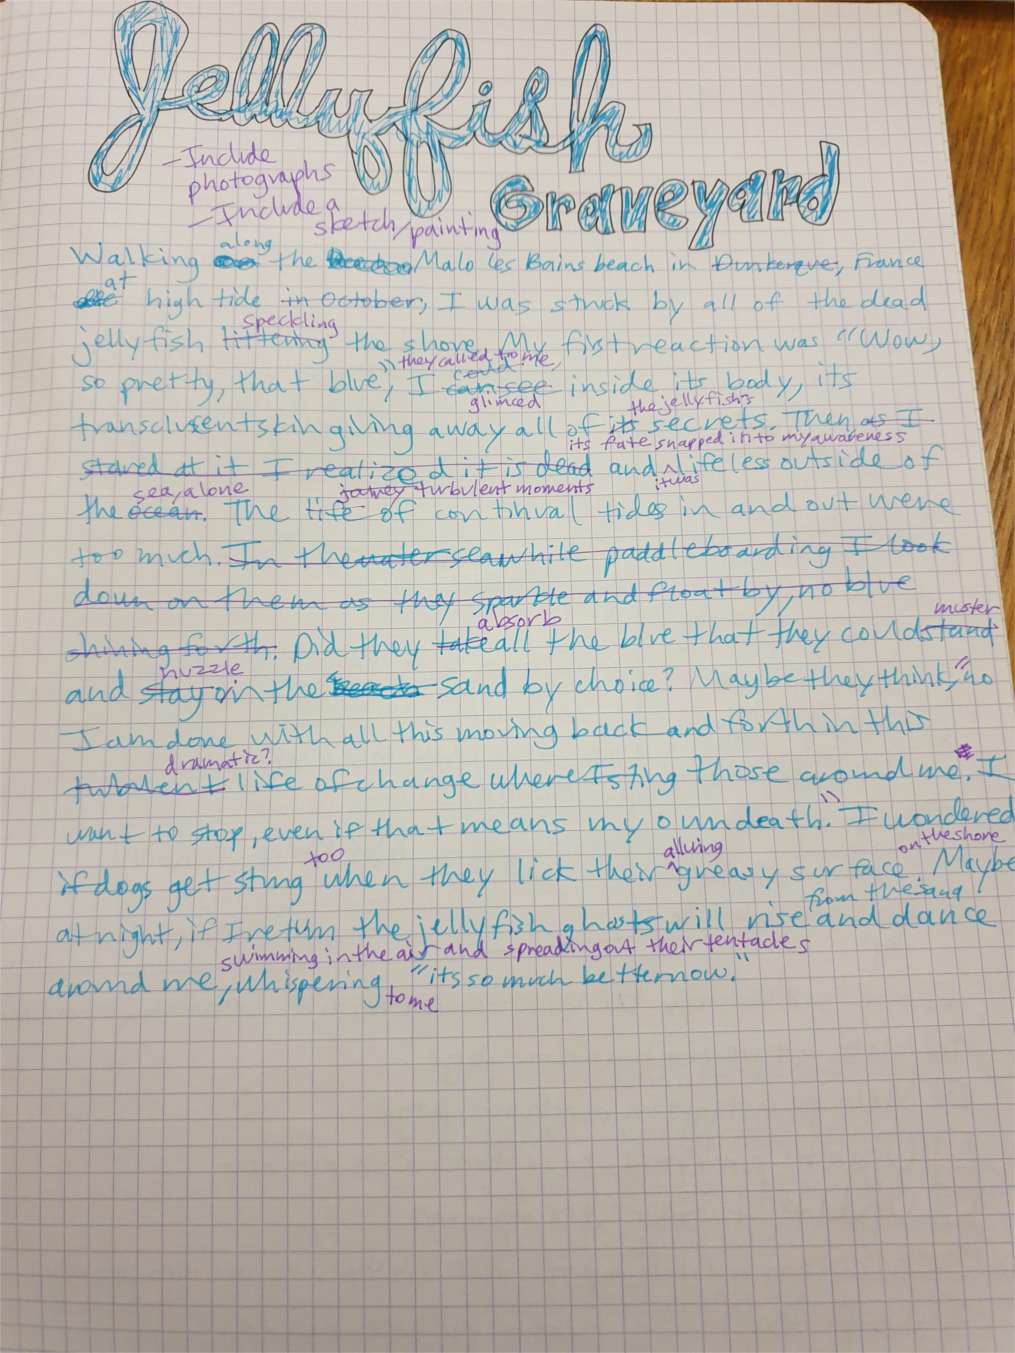 Jellyfish
Graveyard
- Include
photographs
- Include a
sketch/painting
along
Walking the Malo les Bains beach in Dunkerque, France
at
high tide in October, I was struck by all of the dead
speckling
jellyfish littering the shore. My first reaction was "Wow,
" they called to me,
so pretty, that blue, I can see inside its body, its
could
glimced the jellyfish's
transcluscent skin giving away all of its secrets. Then as I
its fate snapped in to my awareness
stared at it I realized it is dead and lifeless outside of
sea, alone turbulent moments it was
the ocean. The life of continual tides in and out were
too much. In the water sea while paddleboarding I look
down on them as they sparkle and float by, no blue
absorb muster
shining forth. Did they take all the blue that they could stand
nuzzle
and stay in the sand by choice? Maybe they think, "no
I am done with all this moving back and forth in this
dramatic?
turbulent life of change where I sting those around me. I
want to stop, even if that means my own death." I wondered
too alluring on the shore
if dogs get stung when they lick their greasy surface. Maybe
from the sand
at night, if I return the jellyfish ghosts will rise and dance
swimming in the air and spreading out their tentacles
around me, whispering "its so much better now."
to me